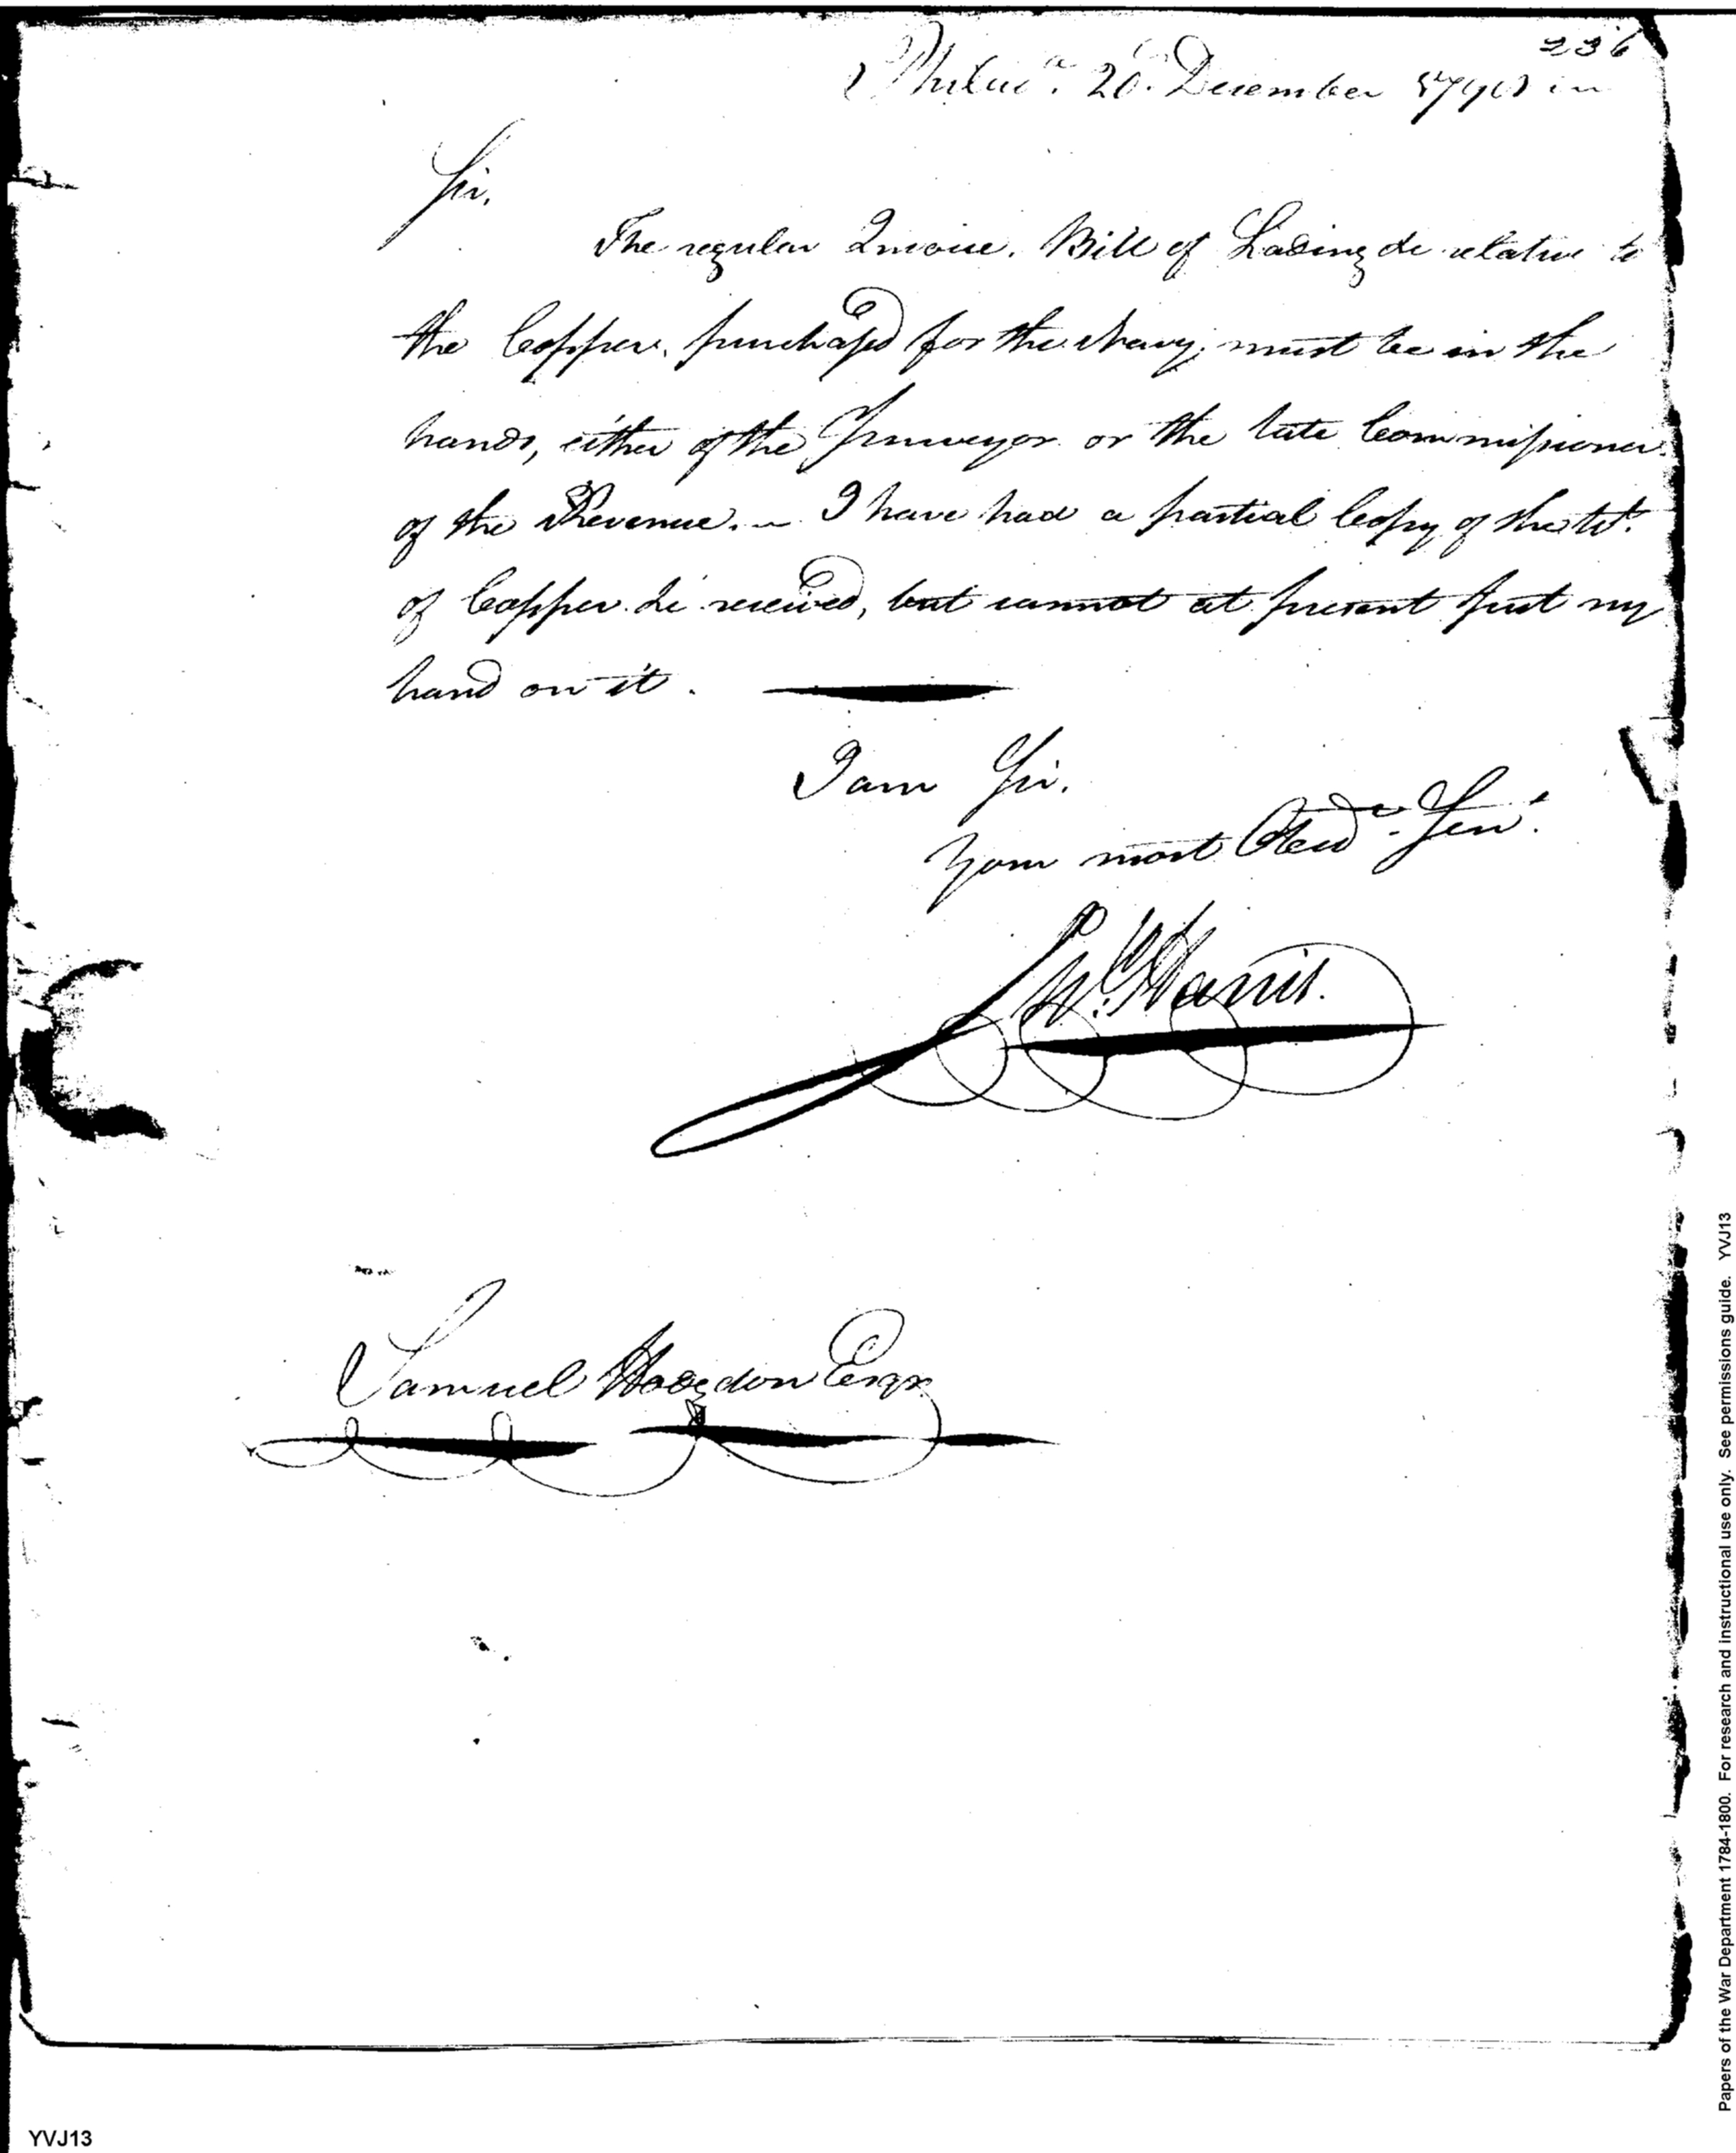 236
Philad.ª 20. December
Sir,
The regular Invoice. Bill of Lading &c relative to
the Copper, purchased for the Navy; must be in the
hands, either of the Purveyor or the late Commissioner
of the Revenue. — I have had a partial Copy of the wt.
of Copper &c received, but cannot at present put my
hand on it.
I am Sir.
Your most Obedt. Servt.
Harris.
Samuel Hodgdon Esqr.
Papers of the War Department 1784-1800. For research and instructional use only. See permissions guide. YVJ13
YVJ13